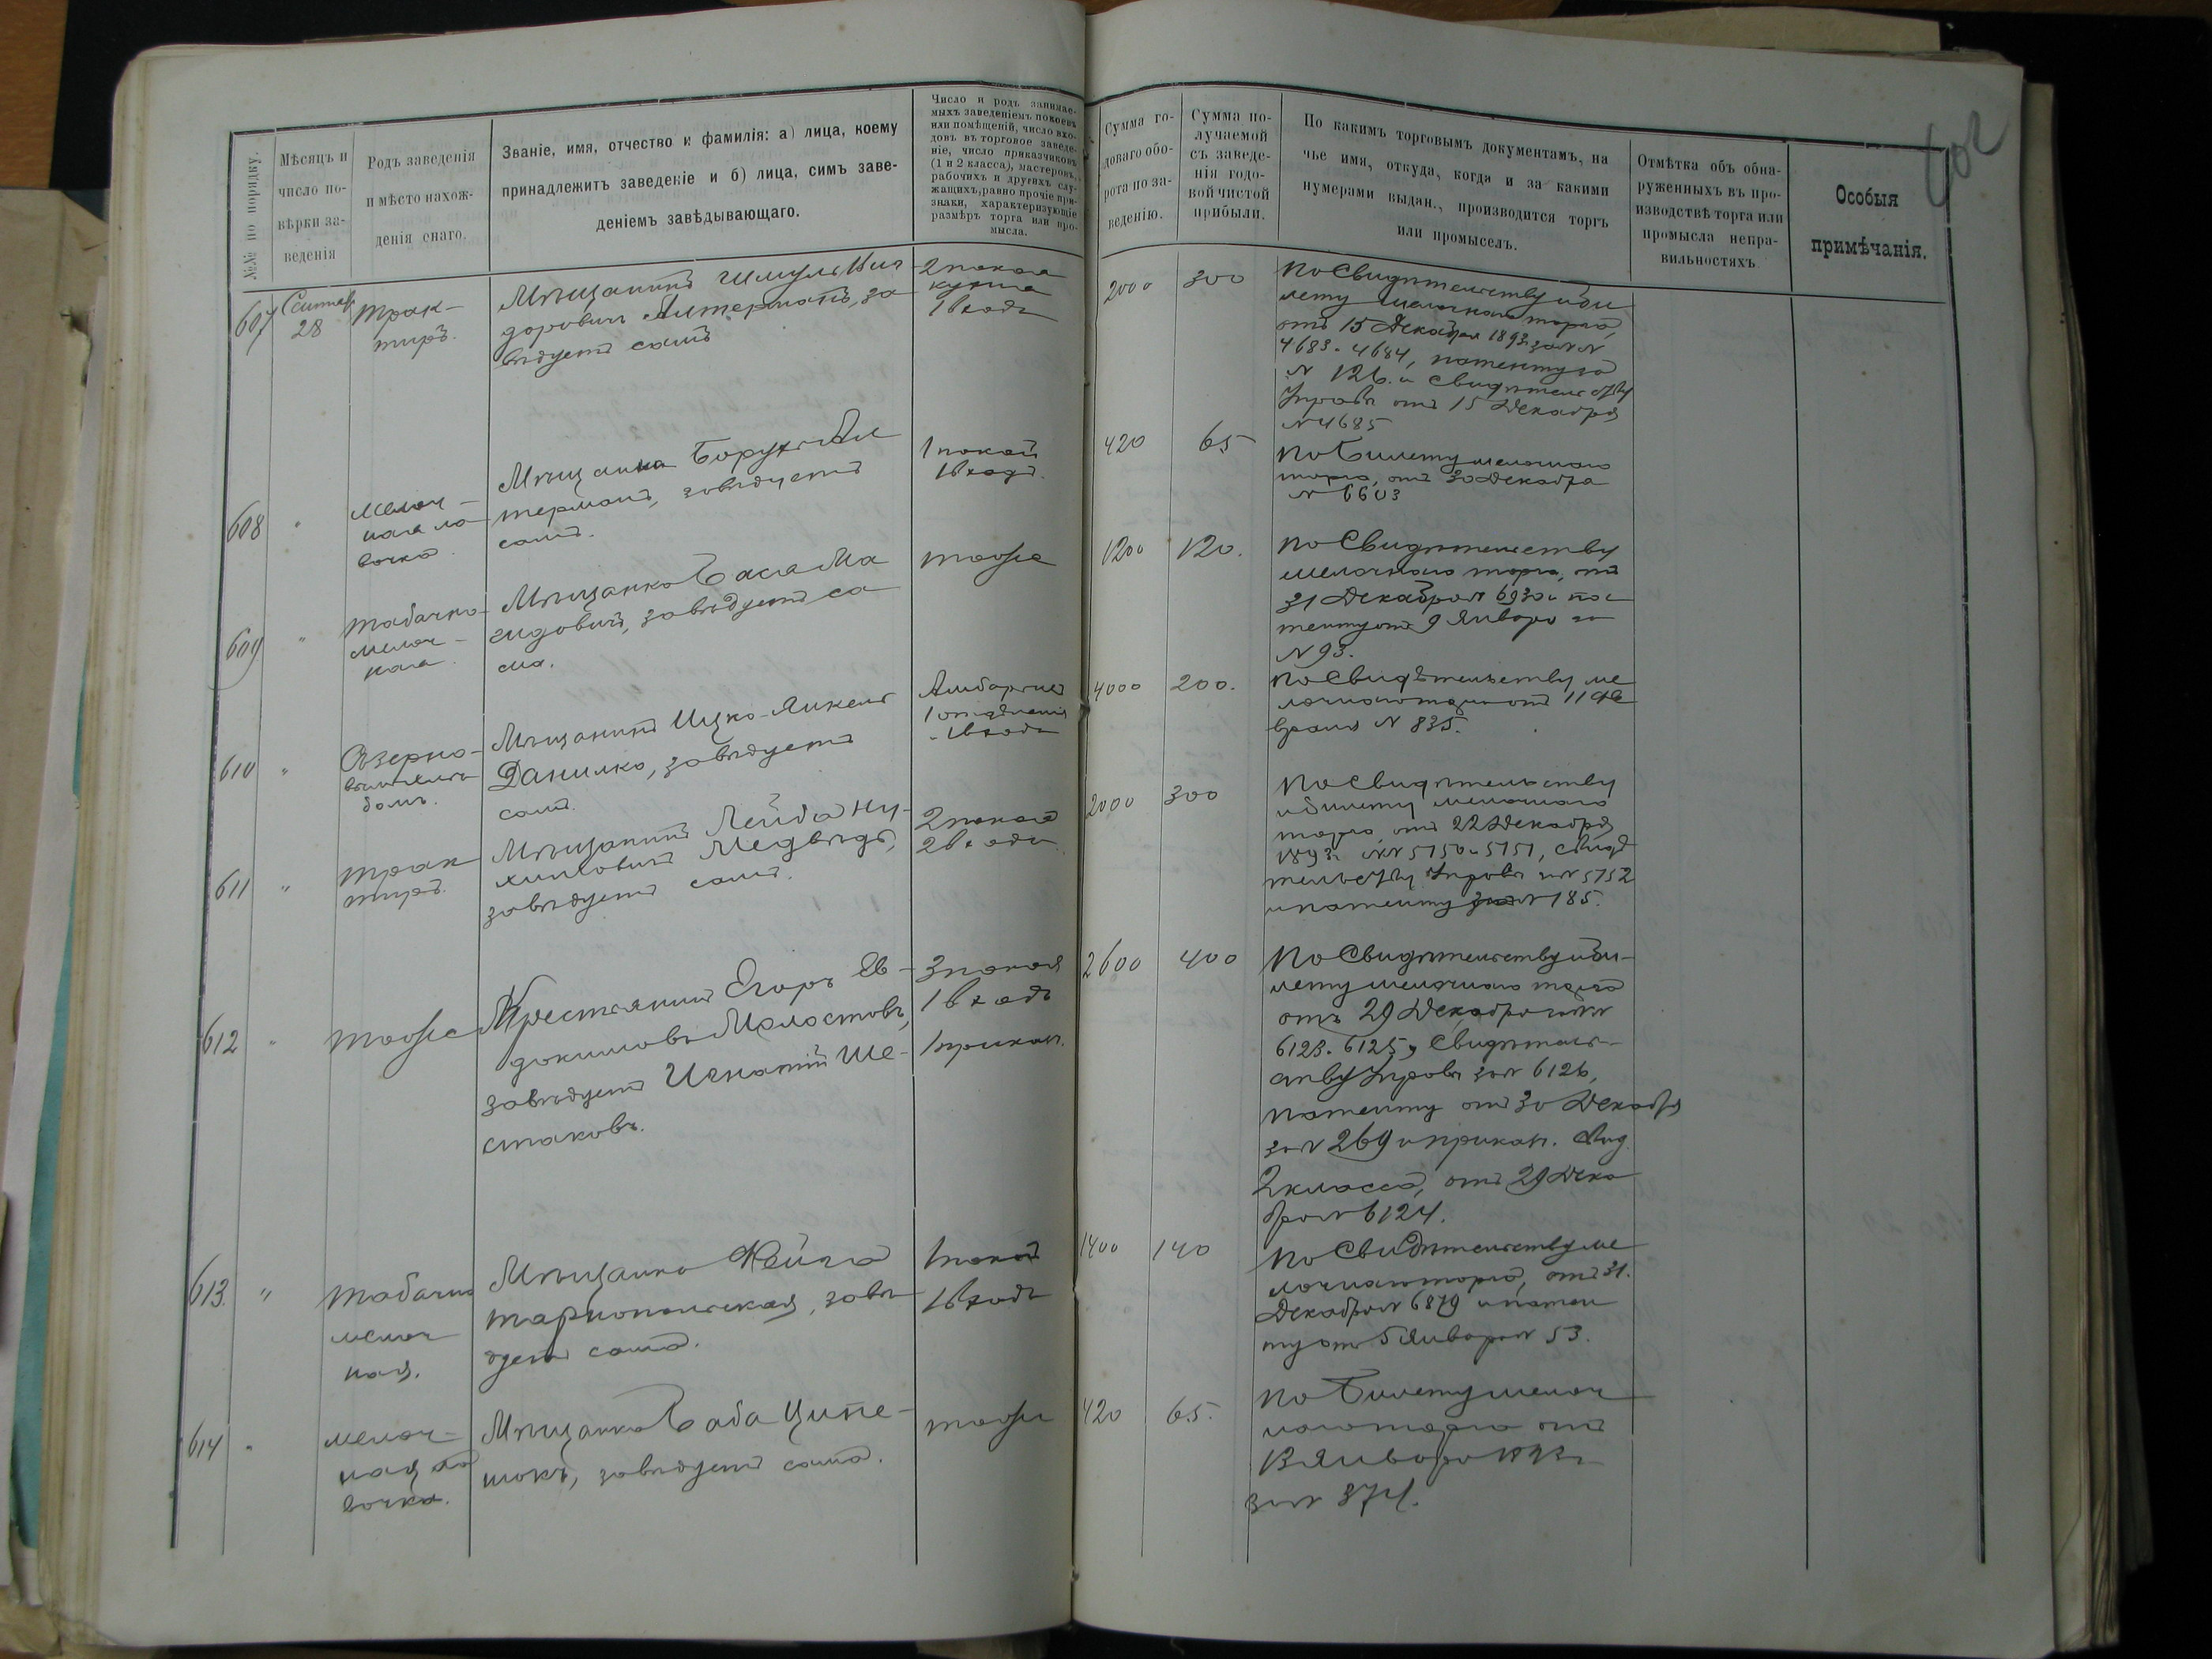 №№ по порядку.
Мѣсяцъ и
число по-
вѣрки за-
веденія
Родъ заведенія
и мѣсто нахож-
денія онаго.
Званіе, имя, отчество и фамилія: а) лица, коему
принадлежитъ заведеніе и б) лица, симъ заве-
деніемъ завѣдывающаго.
Число и родъ занимае-
мыхъ заведеніемъ покоевъ
или помѣщеній, число вхо-
довъ въ торговое заведе-
ніе, число приказчиковъ
(1 и 2 класса), мастеровъ,
рабочихъ и другихъ слу-
жащихъ, равно прочіе при-
знаки, характеризующіе
размѣръ торга или про-
мысла.
Сумма го-
доваго обо-
рота по за-
веденію.
Сумма по-
лучаемой
съ заведе-
нія годо-
вой чистой
прибыли.
По какимъ торговымъ документамъ, на
чье имя, откуда, когда и за какими
нумерами выдан., производится торгъ
или промыселъ.
Отмѣтка объ обна-
руженныхъ въ про-
изводствѣ торга или
промысла непра-
вильностяхъ
Особыя
примѣчанія.
607
28
Трак-
тиръ.
Мѣщанинъ Шмуль
доровичъ Альтерманъ, за
вѣдуетъ самъ
2 покоя
кухня
1 входъ
2000
300
По Свидѣтельству и би
лету мелочнаго торга,
отъ 15 Декабря 1893 за NN
4683. 4684, патенту за
N 126. и Свидѣтельству
Управы отъ 15 Декабря
N 4685
608
"
мелоч-
ная ла
вочка.
Мѣщанка Борухъ Ал
терманъ, завѣдуетъ
самъ.
1 покой
1 входъ.
420
65
По Билету мелочнаго
торга, отъ 30 Декабря
N 6603
609
"
Табачно
мелоч-
ная.
Мѣщанка Бася Ма
гидовичъ, завѣдуетъ са
ма.
тоже
1200
120.
По Свидѣтельству
мелочнаго торга, отъ
31 Декабря N 6930 и па
тенту отъ 9 Января за
N 93.
610
"
Мѣщанинъ Ицко-Янкель
Данилко, завѣдуетъ
самъ.
1 отдѣленіе
1 входъ
4000
200.
По Свидѣтельству ме
лочнаго торга отъ 11 Фе
враля N 835.
611
"
Трак
тиръ.
Мѣщанинъ Лейба Ну-
химовичъ Медвѣдь,
завѣдуетъ самъ.
2 покоя
2 входа
2000
300
По Свидѣтельству
и билету мелочнаго
торга, отъ 22 Декабря
1893 г NN 5150 и 5151, Свидѣ
тельству Управы за N 5152
и патенту за N 185.
612
"
тоже
Крестьянинъ Егоръ Ев-
докимовъ Молостовъ,
завѣдуетъ Игнатій Ше-
стаковъ.
3 покоя
1 входъ
1 приказ.
2600
400
По Свидѣтельству и би-
лету мелочнаго торга
отъ 29 Декабря за NN
6123. 6125, Свидѣтель-
ству Управы за N 6126,
патенту отъ 30 Декабря
за N 269 и приказ. Свид.
2 класса, отъ 29 Дека
бря N 6124.
613.
"
Табачно
мелоч
ная.
Мѣщанка Фейга
Тарнопольская, завѣ
дуетъ сама.
1 покой
1 входъ
1400
140
По Свидѣтельству ме
лочнаго торга, отъ 31.
Декабря N 6879 и патен
ту отъ 5 Января N 53.
614
"
мелоч-
ная ла
вочка.
Мѣщанка Баба Ципе-
нюкъ, завѣдуетъ сама.
тоже
420
65.
По Билету мелоч
наго торга отъ
13 Января 1893 г
за N 374.